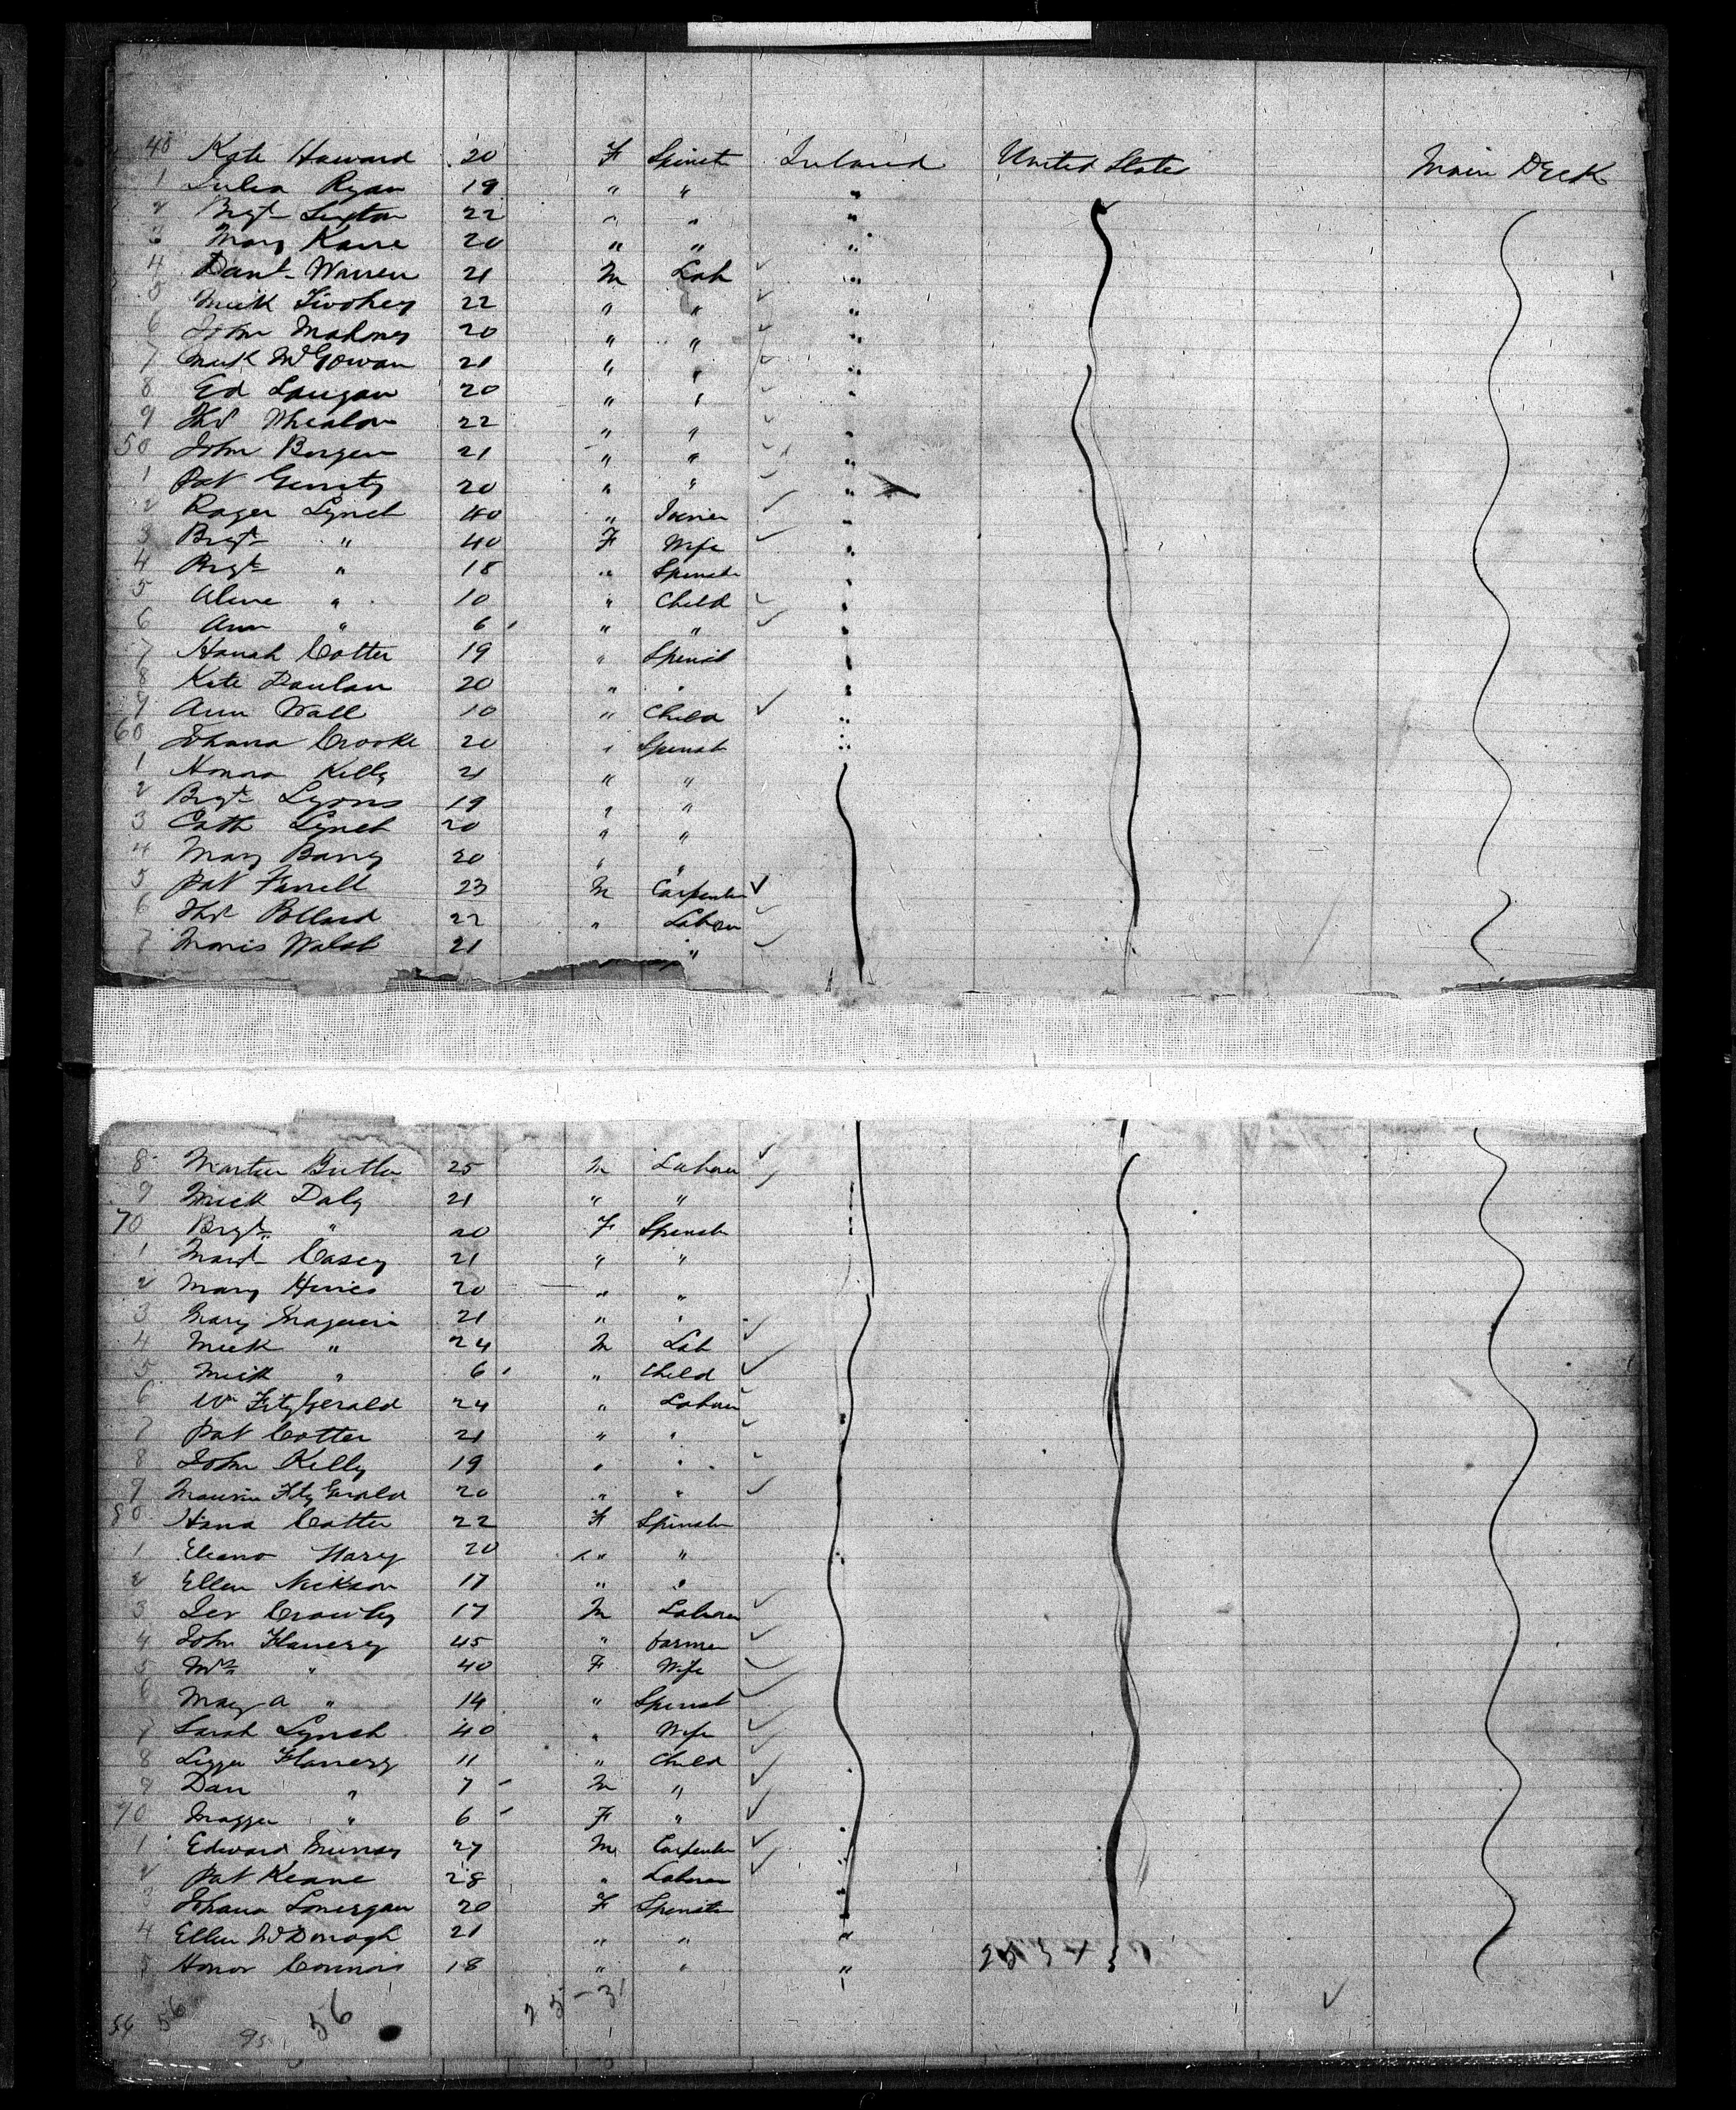 40 Kate Howard 20 F Spinstr Ireland United States Main Deck
1 Julia Ryan 19 " " "
2 Brgt Sexton 22 " " "
3 Mary Kane 20 " " "
4 Danl Warren 21 M Lab "
5 Mick Twohey 22 " " "
6 John Mahony 20 " " "
7 Mick McGowan 21 " " "
8 Ed Langan 20 " " "
9 Thos Whealon 22 " " "
50 John Bergen 21 " " "
1 Pat Gerrity 20 " " "
2 Roger Lynch 40 " "
3 Brgt " 40 F Wife "
4 Brgt " 18 " Spinstr "
5 " 10 " Child "
6 Ann " 6 " " "
7 Hanah Cotter 19 " Spinst "
8 Kate Danlan 20 " " "
9 Ann Wall 10 " Child "
60 Johana Crooke 20 " Spinst "
1 Honora Kelly 21 " "
2 Brgt Lyons 19 " "
3 Cath Lynch 20 " "
4 Mary Barry 20 " "
5 Pat Farrell 23 M Carpenter
6 Thos Pollard 22 " Labour
7 Moris Walsh 21 "
8 Martin Butler 25 M Labour
9 Mick Daly 21 " "
70 Brgt " 20 F Spinstr
1 Margt Casey 21 " "
2 Mary Hines 20 " "
3 Mary Maguire 21 " "
4 Mick " 24 M Lab
5 Mick " 6 " Child
6 Wm FitzGerald 24 " Labour
7 Pat Cotter 21 " "
8 John Kelly 19 " "
9 Maurice FitzGerald 20 " "
80 Hana Cotter 22 F Spinster
1 Eleano Hary 20 " "
2 Ellen Nickson 17 " "
3 Jer Crowley 17 M Labour
4 John Flanery 45 " Farmer
5 Mrs " 40 F Wife
6 Mary A " 14 " Spinst
7 Sarah Lynch 40 " Wife
8 Lizzie Flanery 11 " Child
9 Dan " 7 M "
90 Maggie " 6 F "
1 Edward Murray 27 M Carpenter
2 Pat Keane 28 " Labour
3 Johana Lonergan 20 F Spinster
4 Ellen McDonogh 21 " " "
5 Honor Connors 18 " " "
56 56 95 56 25-31